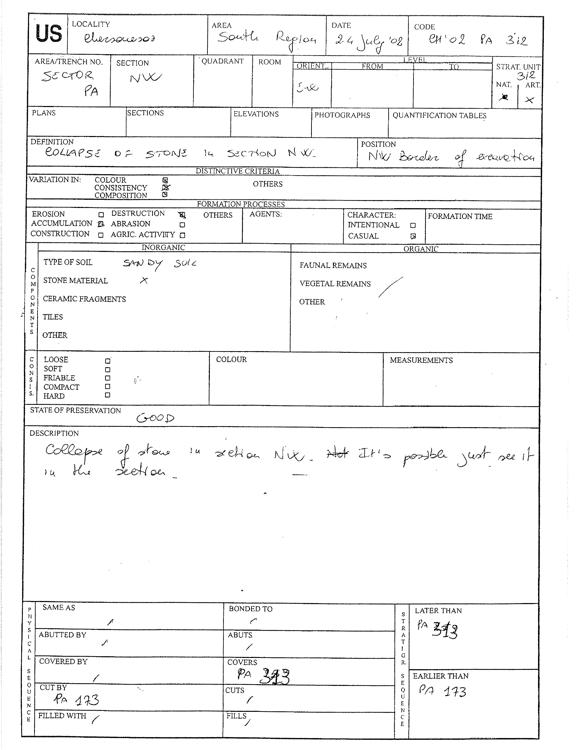 US
LOCALITY
Chersonesos
AREA
South Region
DATE
24 July '02
CODE
CH'02 PA 312
AREA/TRENCH NO.
SECTOR
PA
SECTION
NW
QUADRANT
ROOM
LEVEL
ORIENT.
FROM
TO
STRAT. UNIT
312
NAT.
ART.
x
PLANS
SECTIONS
ELEVATIONS
PHOTOGRAPHS
QUANTIFICATION TABLES
DEFINITION
COLLAPSE OF STONE IN SECTION NW.
POSITION
NW Border of excavation
DISTINCTIVE CRITERIA
VARIATION IN: COLOUR
CONSISTENCY
COMPOSITION
OTHERS
FORMATION PROCESSES
EROSION DESTRUCTION OTHERS
ACCUMULATION ABRASION
CONSTRUCTION AGRIC. ACTIVITY
AGENTS:
CHARACTER:
INTENTIONAL
CASUAL
FORMATION TIME
COMPONENTS
INORGANIC
TYPE OF SOIL SANDY SOIL
STONE MATERIAL x
CERAMIC FRAGMENTS
TILES
OTHER
ORGANIC
FAUNAL REMAINS
VEGETAL REMAINS /
OTHER
CONSIS.
LOOSE
SOFT
FRIABLE
COMPACT
HARD
COLOUR
MEASUREMENTS
STATE OF PRESERVATION
GOOD
DESCRIPTION
Collapse of stone in section NW. Not It's possible just see it
in the section.
PHYSICAL SEQUENCE
SAME AS
/
BONDED TO
/
ABUTTED BY
/
ABUTS
/
COVERED BY
/
COVERS
PA 313
CUT BY
PA 173
CUTS
/
FILLED WITH /
FILLS /
STRATIGR. SEQUENCE
LATER THAN
PA 313
EARLIER THAN
PA 173